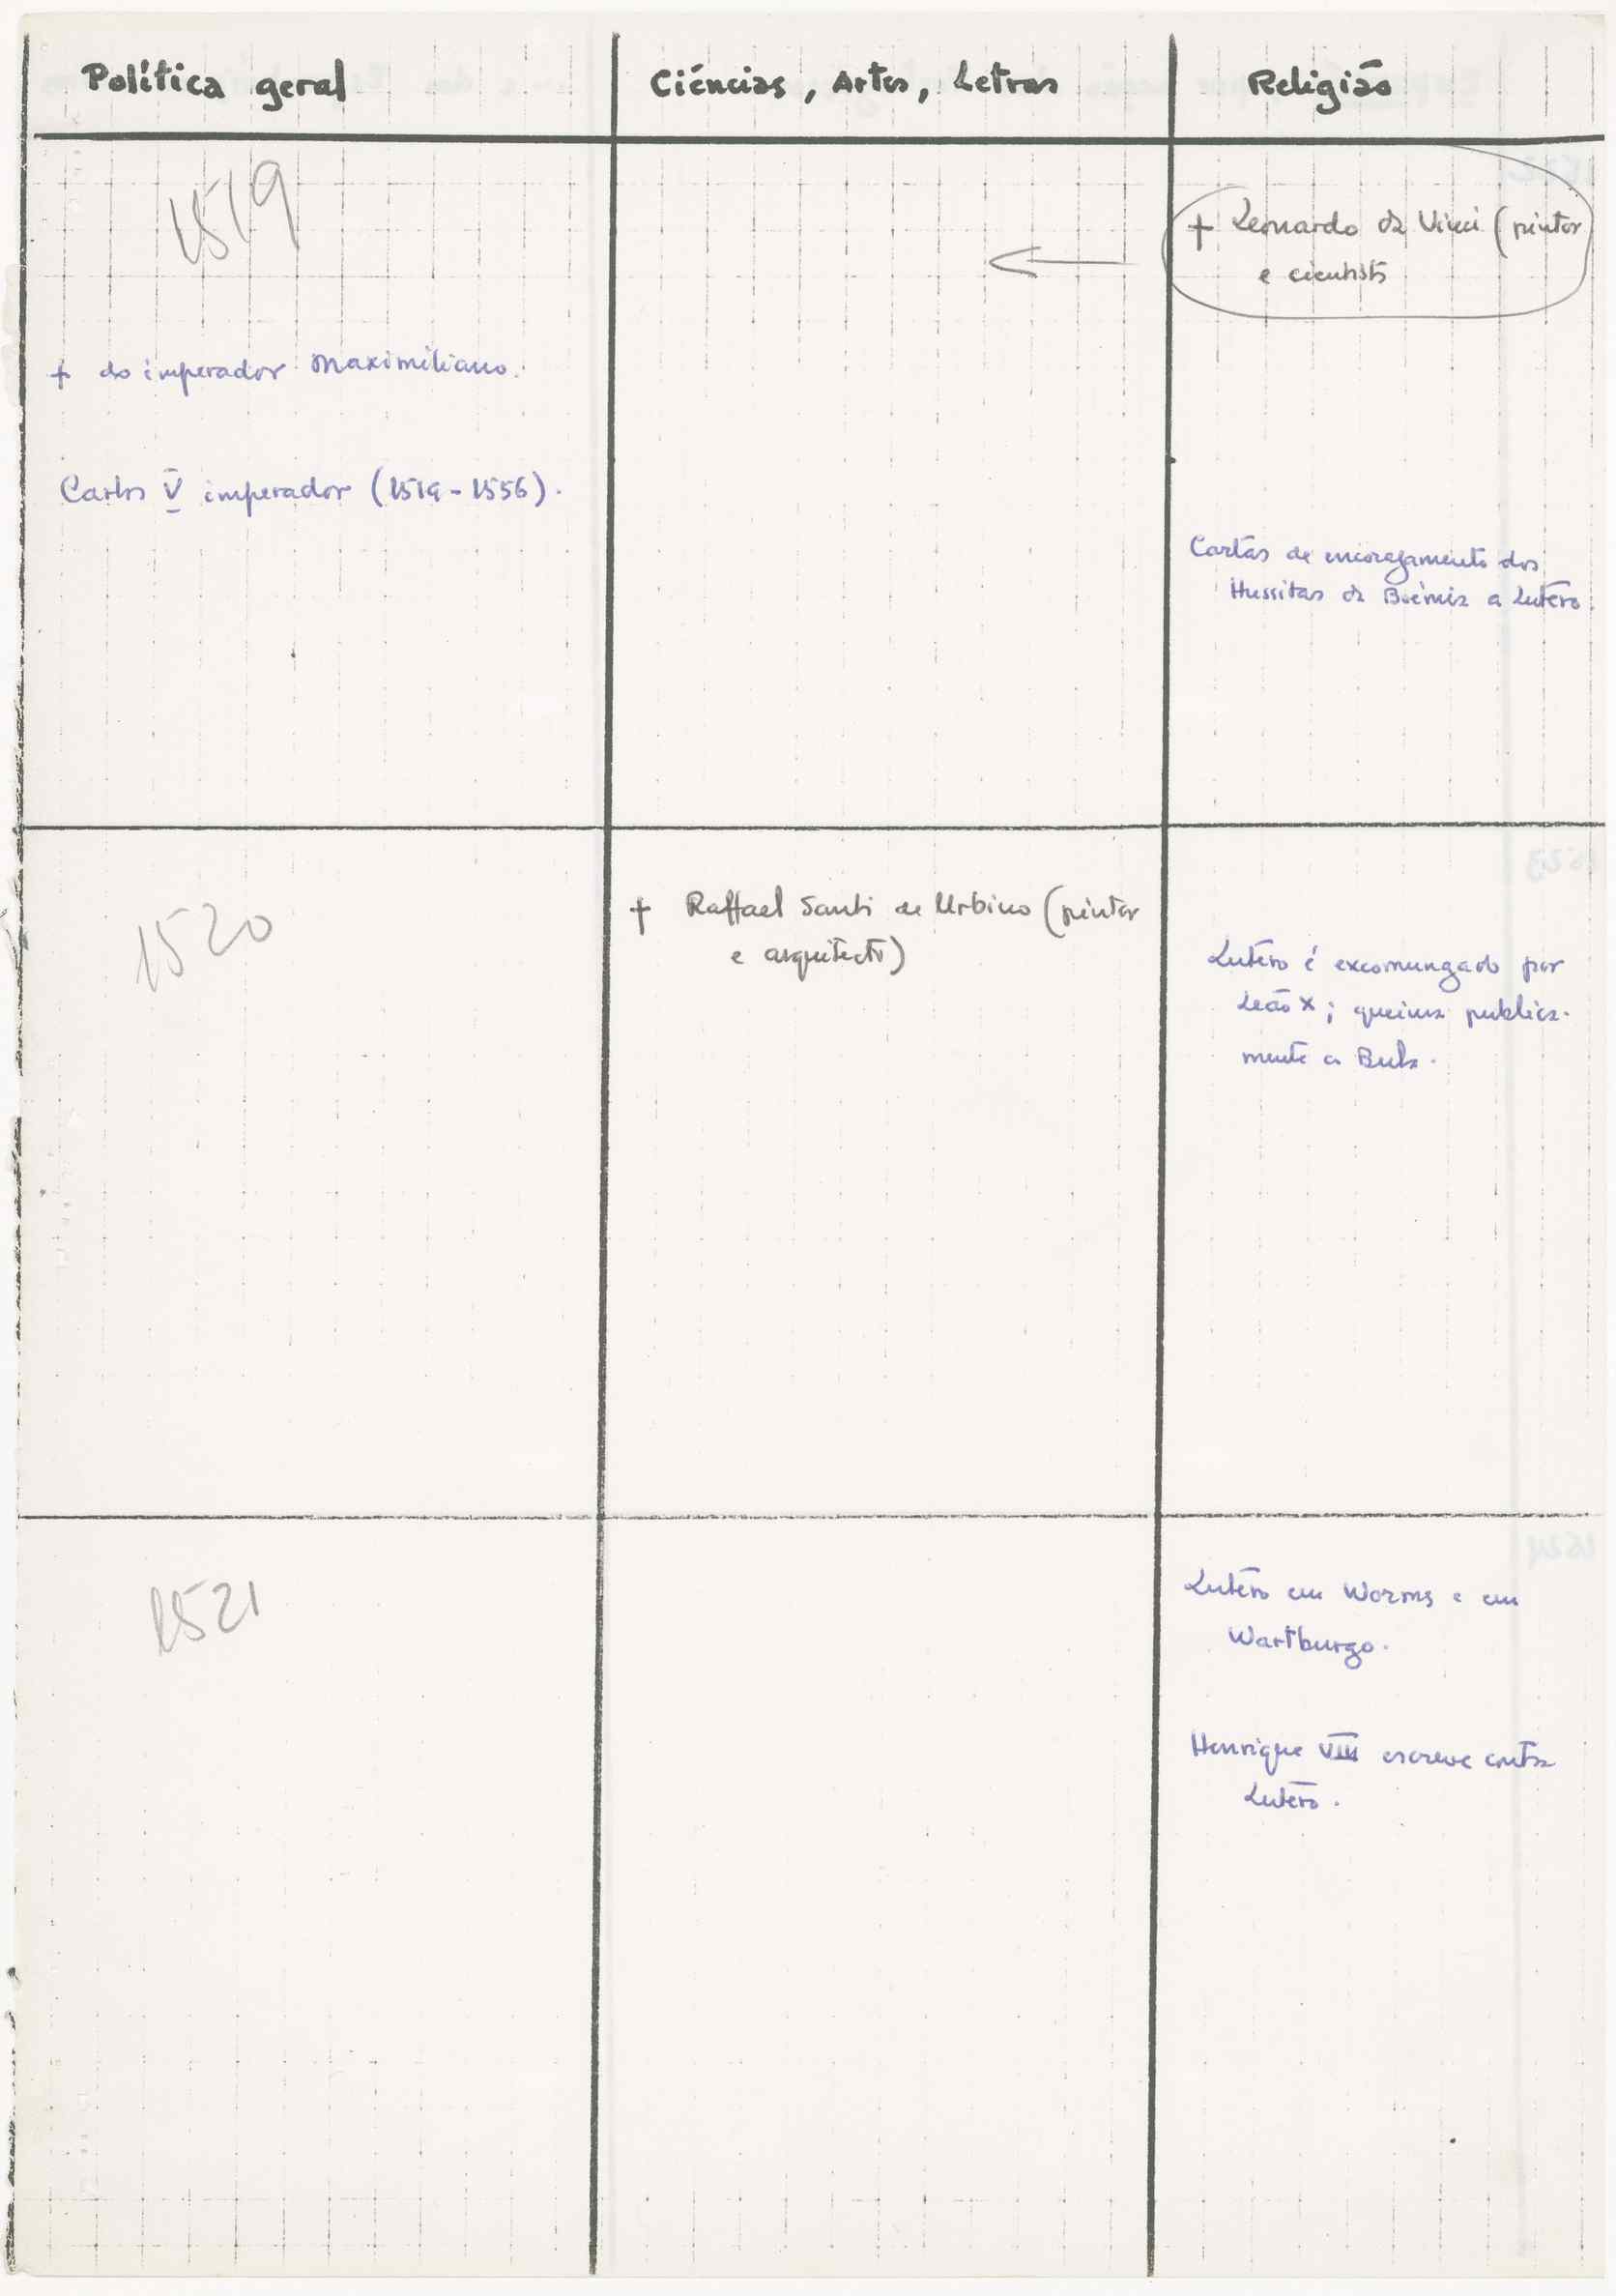 Política geral
Ciências, Artes, Letras
Religião
1519
† do imperador Maximiliano.
Carlos V imperador (1519-1556).
† Leonardo da Vinci (pintor
e cientista
Cartas de encorajamento dos
Hussitas da Boémia a Lutero.
1520
† Raffael Santi de Urbino (pintor
e arquitecto)
Lutero é excomungado por
Leão X; queima publica-
mente a Bula.
1521
Lutero em Worms e em
Wartburgo.
Henrique VIII escreve contra
Lutero.